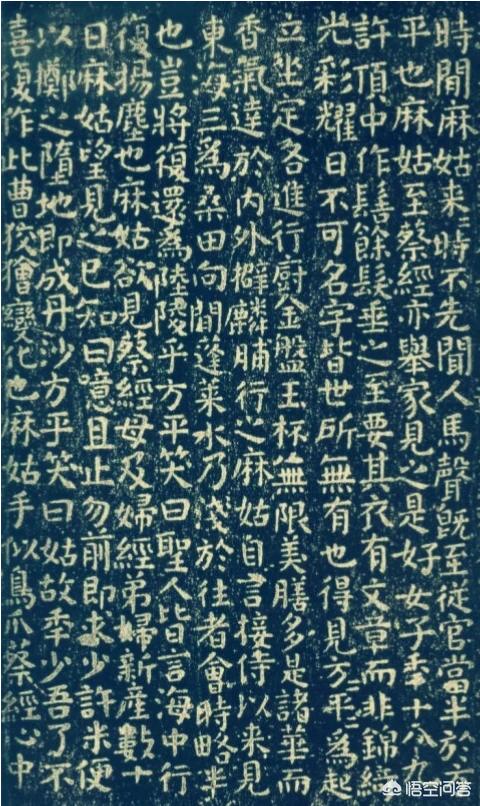 時聞麻姑來〻時不先聞人馬聲既至從官當半於方
平也麻姑至蔡經亦舉家見之是好女子年十八九
許頂中作髻餘髮垂之至要其衣有文章而非錦綺
光彩耀日不可名字皆世所無有也得見方〻平〻為起
立坐定各進行廚金盤玉杯無限美膳多是諸華而
香氣達於內外擗麟脯行之麻姑自言接侍以來見
東海三為桑田向間蓬萊水乃淺於往者會時略半
也豈將復還為陸陵乎方平笑曰聖人皆言海中行
復揚塵也麻姑欲見蔡經母及婦經弟婦新產數十
日麻姑望見之已知曰噫且止勿前即求少許米便
以擲之墮地即成丹沙方平笑曰姑故年少吾了不
喜復作此曹狡獪變化也麻姑手似鳥爪蔡經心中
悟空问答